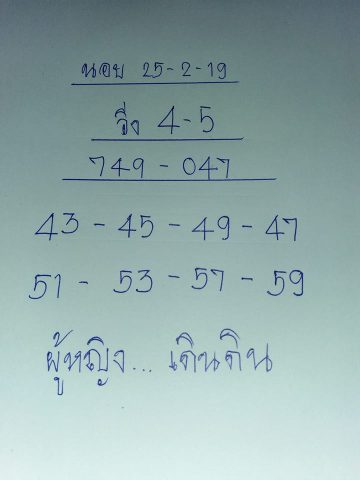 นอย 25-2-19
วิ่ง 4-5
749 - 047
43 - 45 - 49 - 47
51 - 53 - 57 - 59
ผู้หญิง... เดินดิน